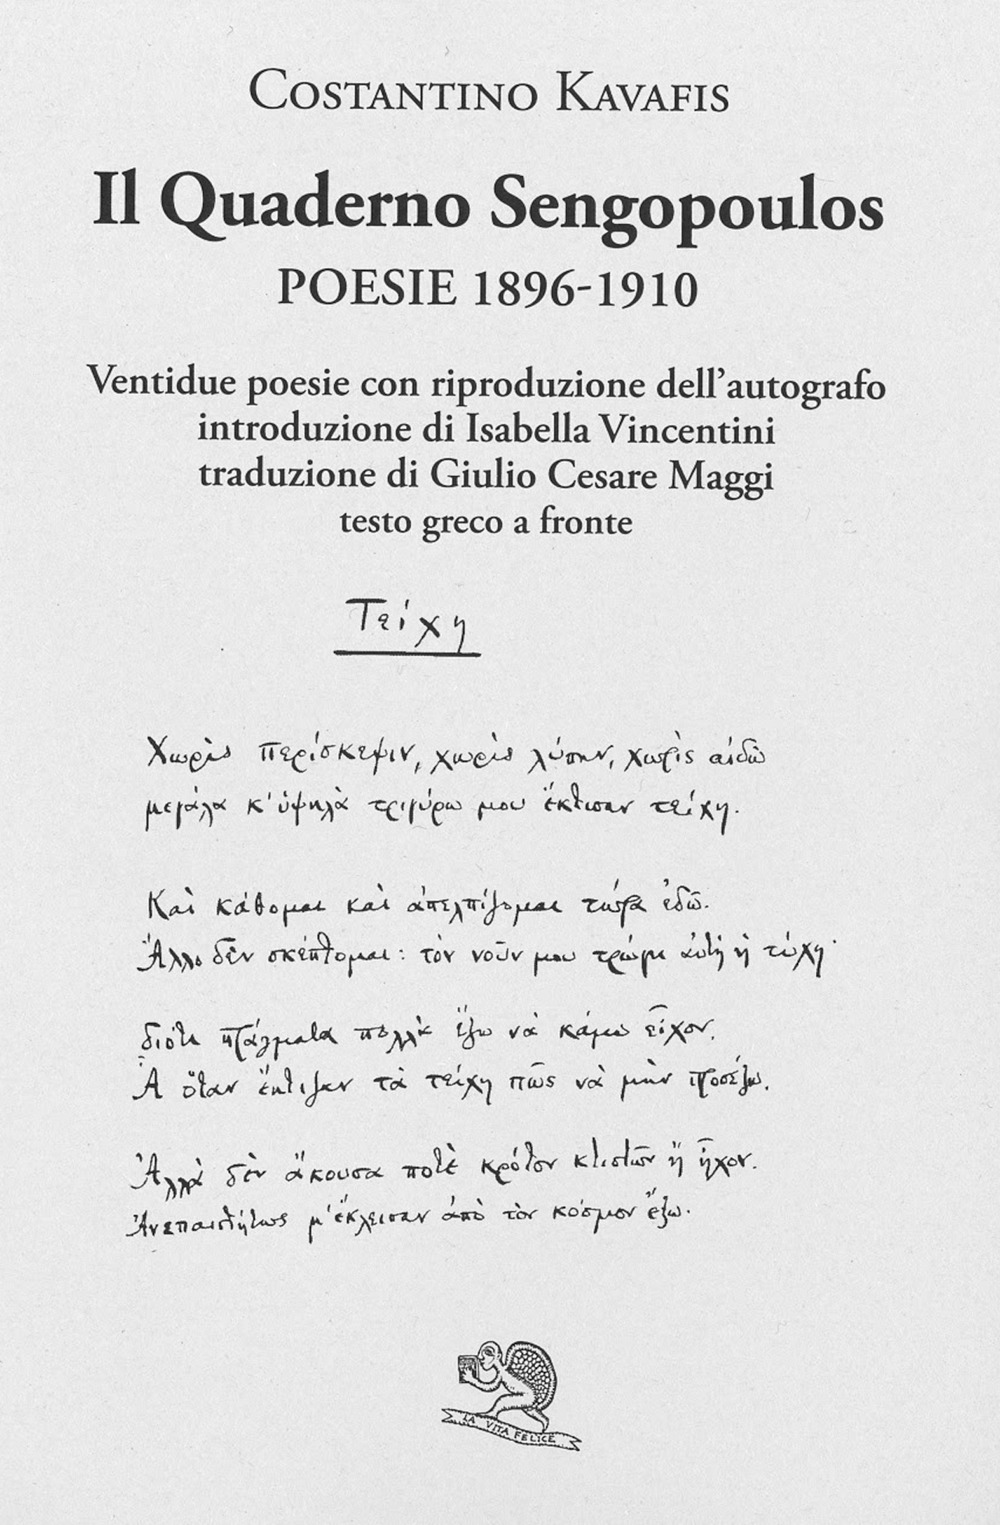 Costantino Kavafis
Il Quaderno Sengopoulos
POESIE 1896-1910
Ventidue poesie con riproduzione dell’autografo
introduzione di Isabella Vincentini
traduzione di Giulio Cesare Maggi
testo greco a fronte
Τείχη
Χωρὶς περίσκεψιν, χωρὶς λύπην, χωρὶς αἰδὼ
μεγάλα κ’ ὑψηλὰ τριγύρω μου ἔκτισαν τείχη.
Καὶ κάθομαι καὶ ἀπελπίζομαι τώρα ἐδῶ.
Ἄλλο δὲν σκέπτομαι: τὸν νοῦν μου τρώγει αὐτὴ ἡ τύχη·
διότι πράγματα πολλὰ ἔξω νὰ κάμω εἶχον.
Ἆ ὅταν ἔκτιζαν τὰ τείχη πῶς νὰ μὴν προσέξω.
Ἀλλὰ δὲν ἄκουσα ποτὲ κρότον κτιστῶν ἢ ἦχον.
Ἀνεπαισθήτως μ’ ἔκλεισαν ἀπὸ τὸν κόσμον ἔξω.
LA VITA FELICE